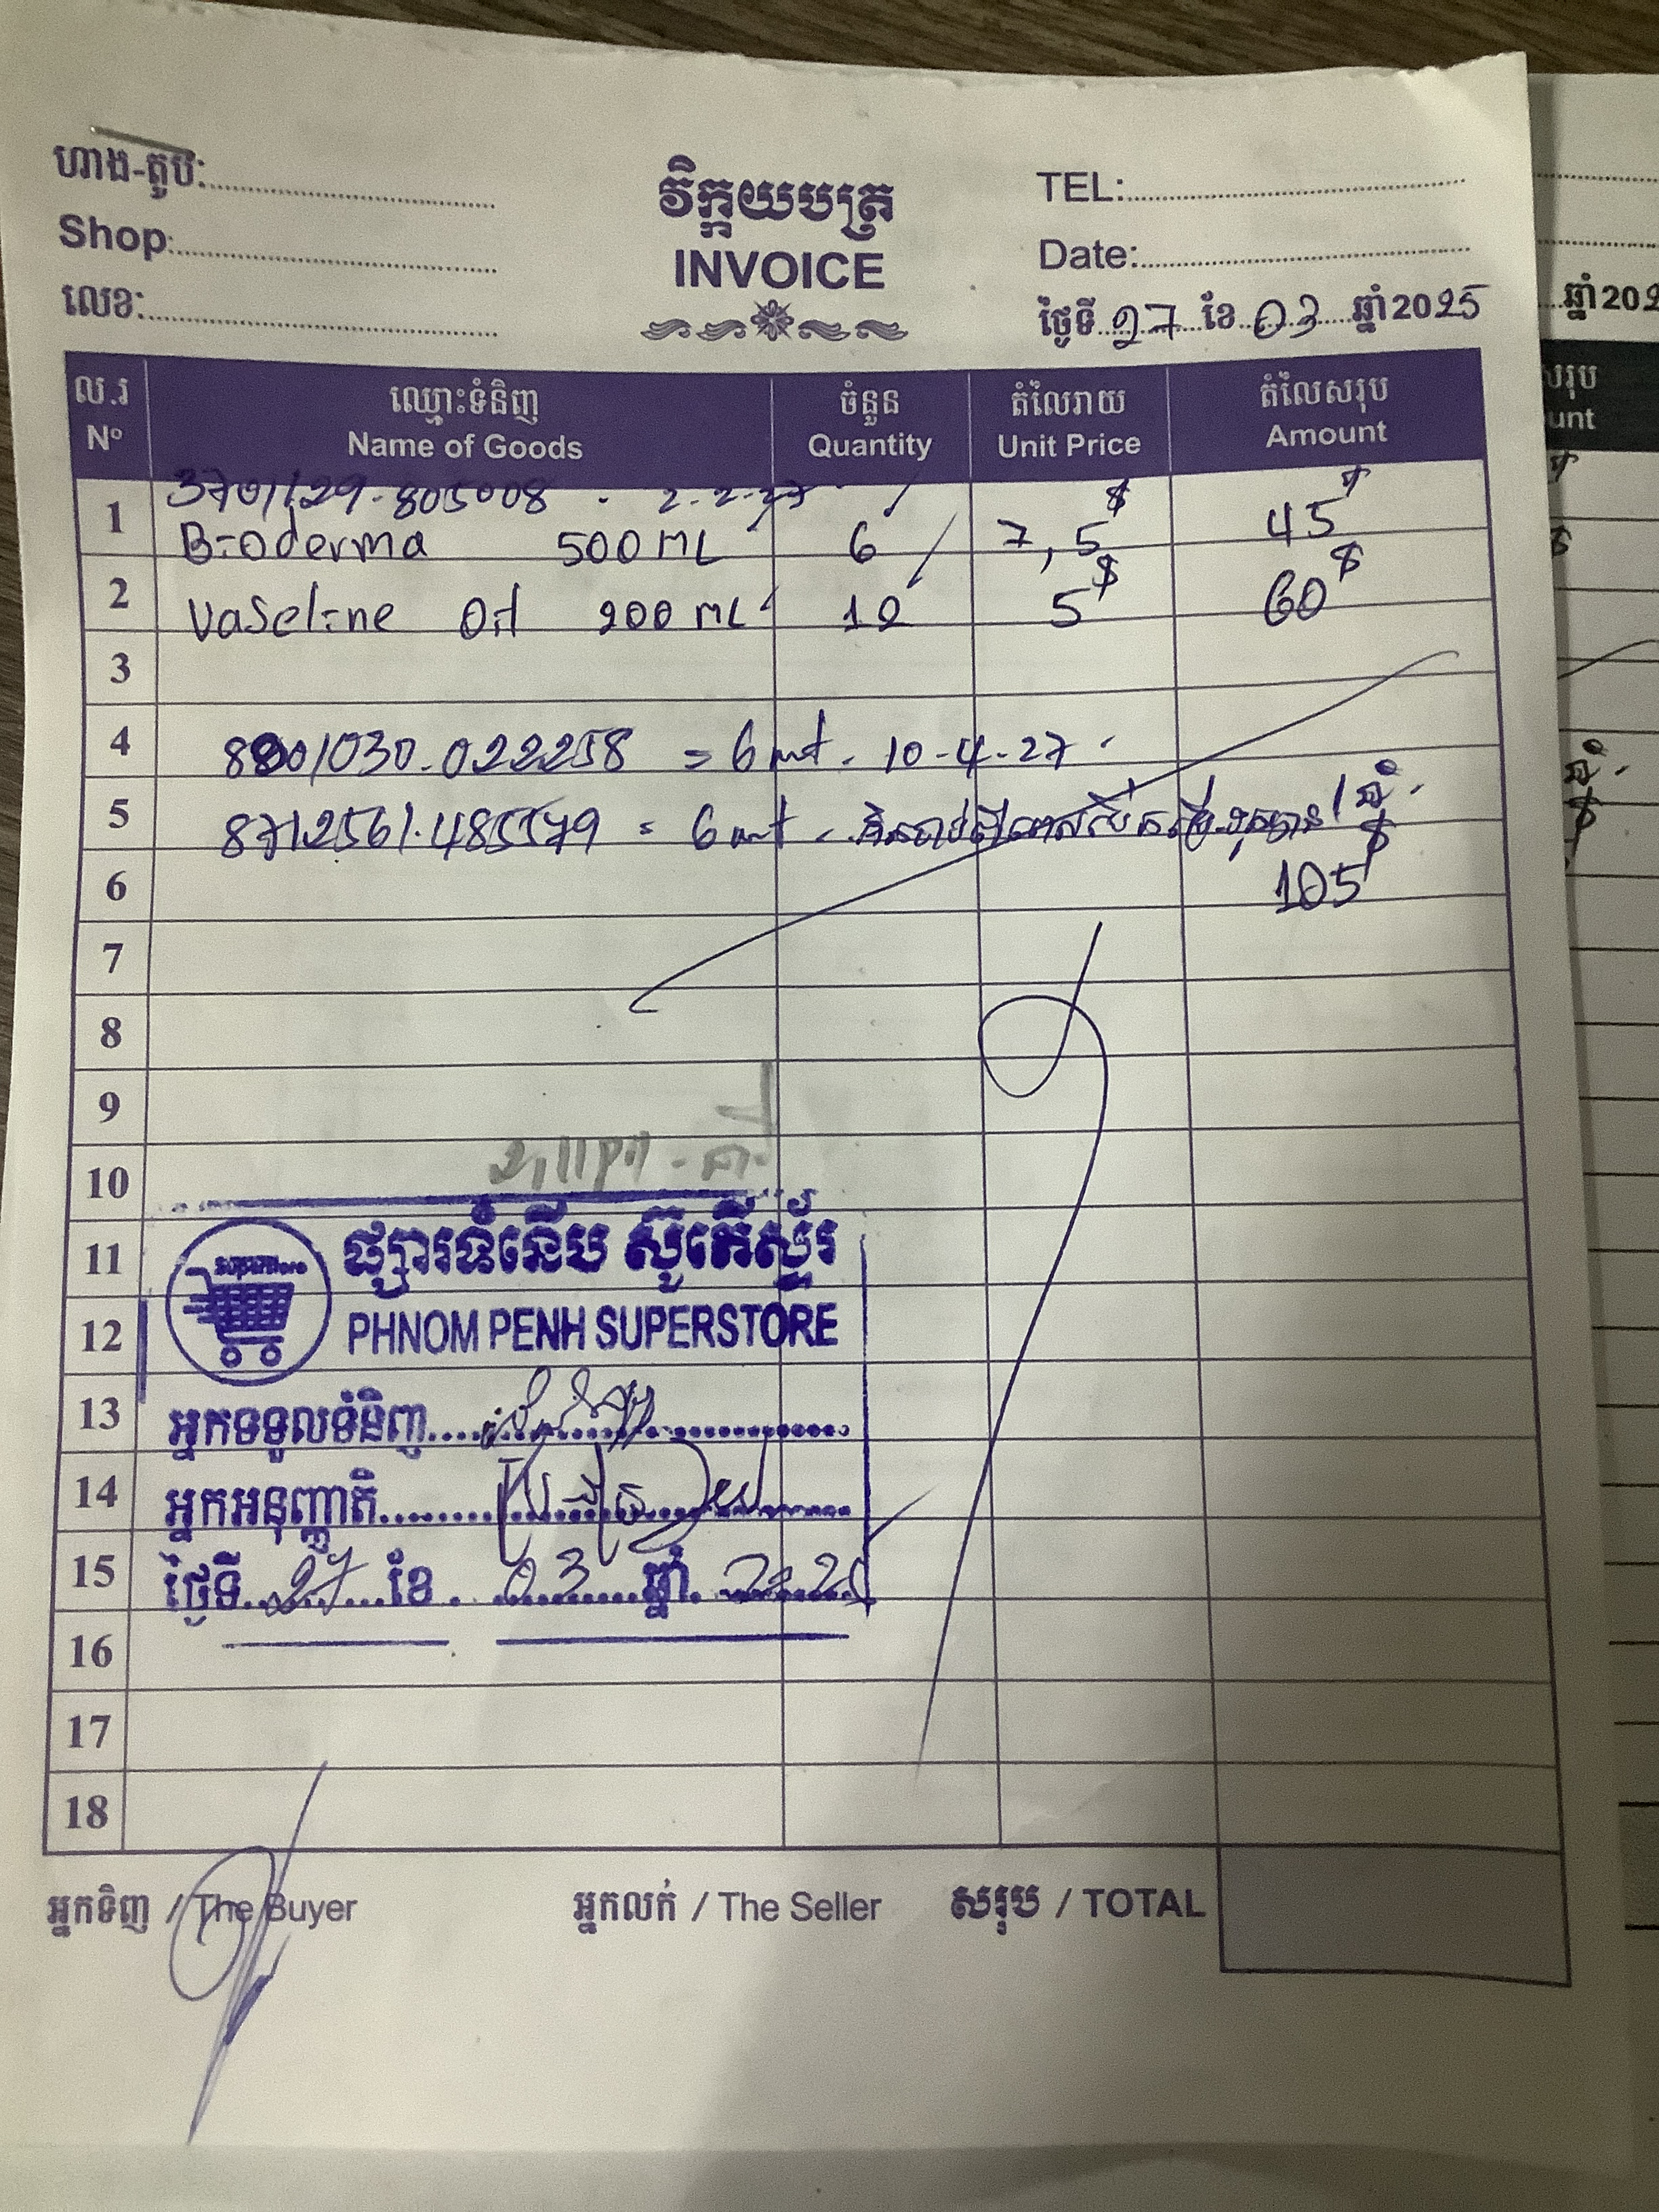 ហាង-តូប:
Shop:
លេខ:
វិក្កយបត្រ
INVOICE
TEL:
Date:
ថ្ងៃទី 27 ខែ 03 ឆ្នាំ 2025
ល.រ ឈ្មោះទំនិញ ចំនួន តំលៃរាយ តំលៃសរុប
Nº Name of Goods Quantity Unit Price Amount
3701129.805008 . 2-2-27
1 Bioderma 500 ML 6 7,5$ 45$
2 Vaseline Oil 200 ML 12 5$ 60$
3
4 8801030.022258 = 6 . 10-4-27
5 8712561.485579 = 6
6 105$
7
8
9
10
11 ផ្សារទំនើប ស៊ូភើស្ទ័រ
12 PHNOM PENH SUPERSTORE
13 អ្នកទទួលទំនិញ
14 អ្នកអនុញ្ញាតិ
15 ថ្ងៃទី 27 ខែ 03 ឆ្នាំ 2025
16
17
18
អ្នកទិញ / The Buyer អ្នកលក់ / The Seller សរុប / TOTAL